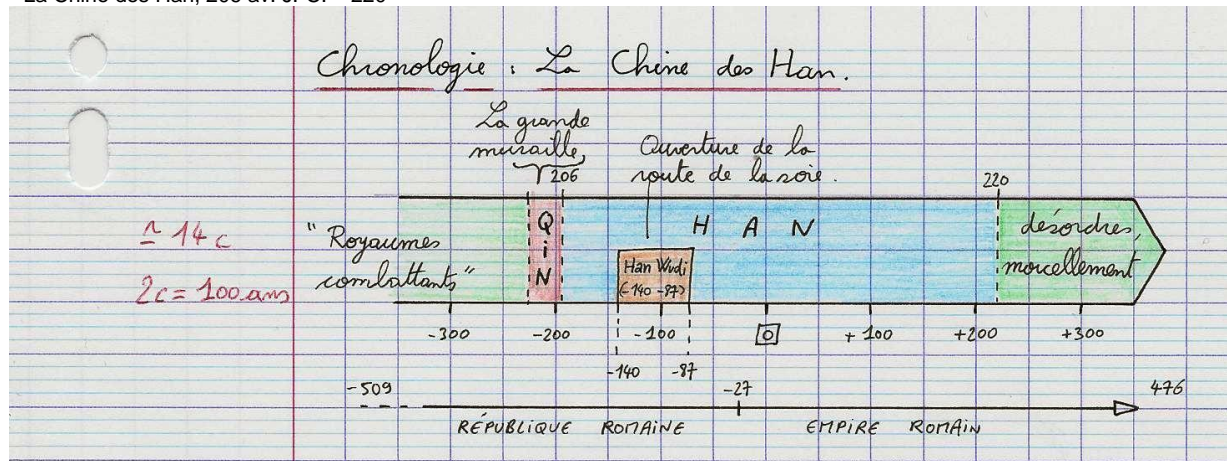 La Chine des Han, 206 av. J. C. - 220
Chronologie : La Chine des Han.
La grande
muraille
206
Ouverture de la
route de la soie.
220
≃ 14 c
2c = 100 ans
"Royaumes
combattants"
QiN
HAN
Han Wudi
(-140 -87)
désordres,
morcellement
-300 -200 -100 0 +100 +200 +300
-140 -87
-509 -27 476
RÉPUBLIQUE ROMAINE EMPIRE ROMAIN